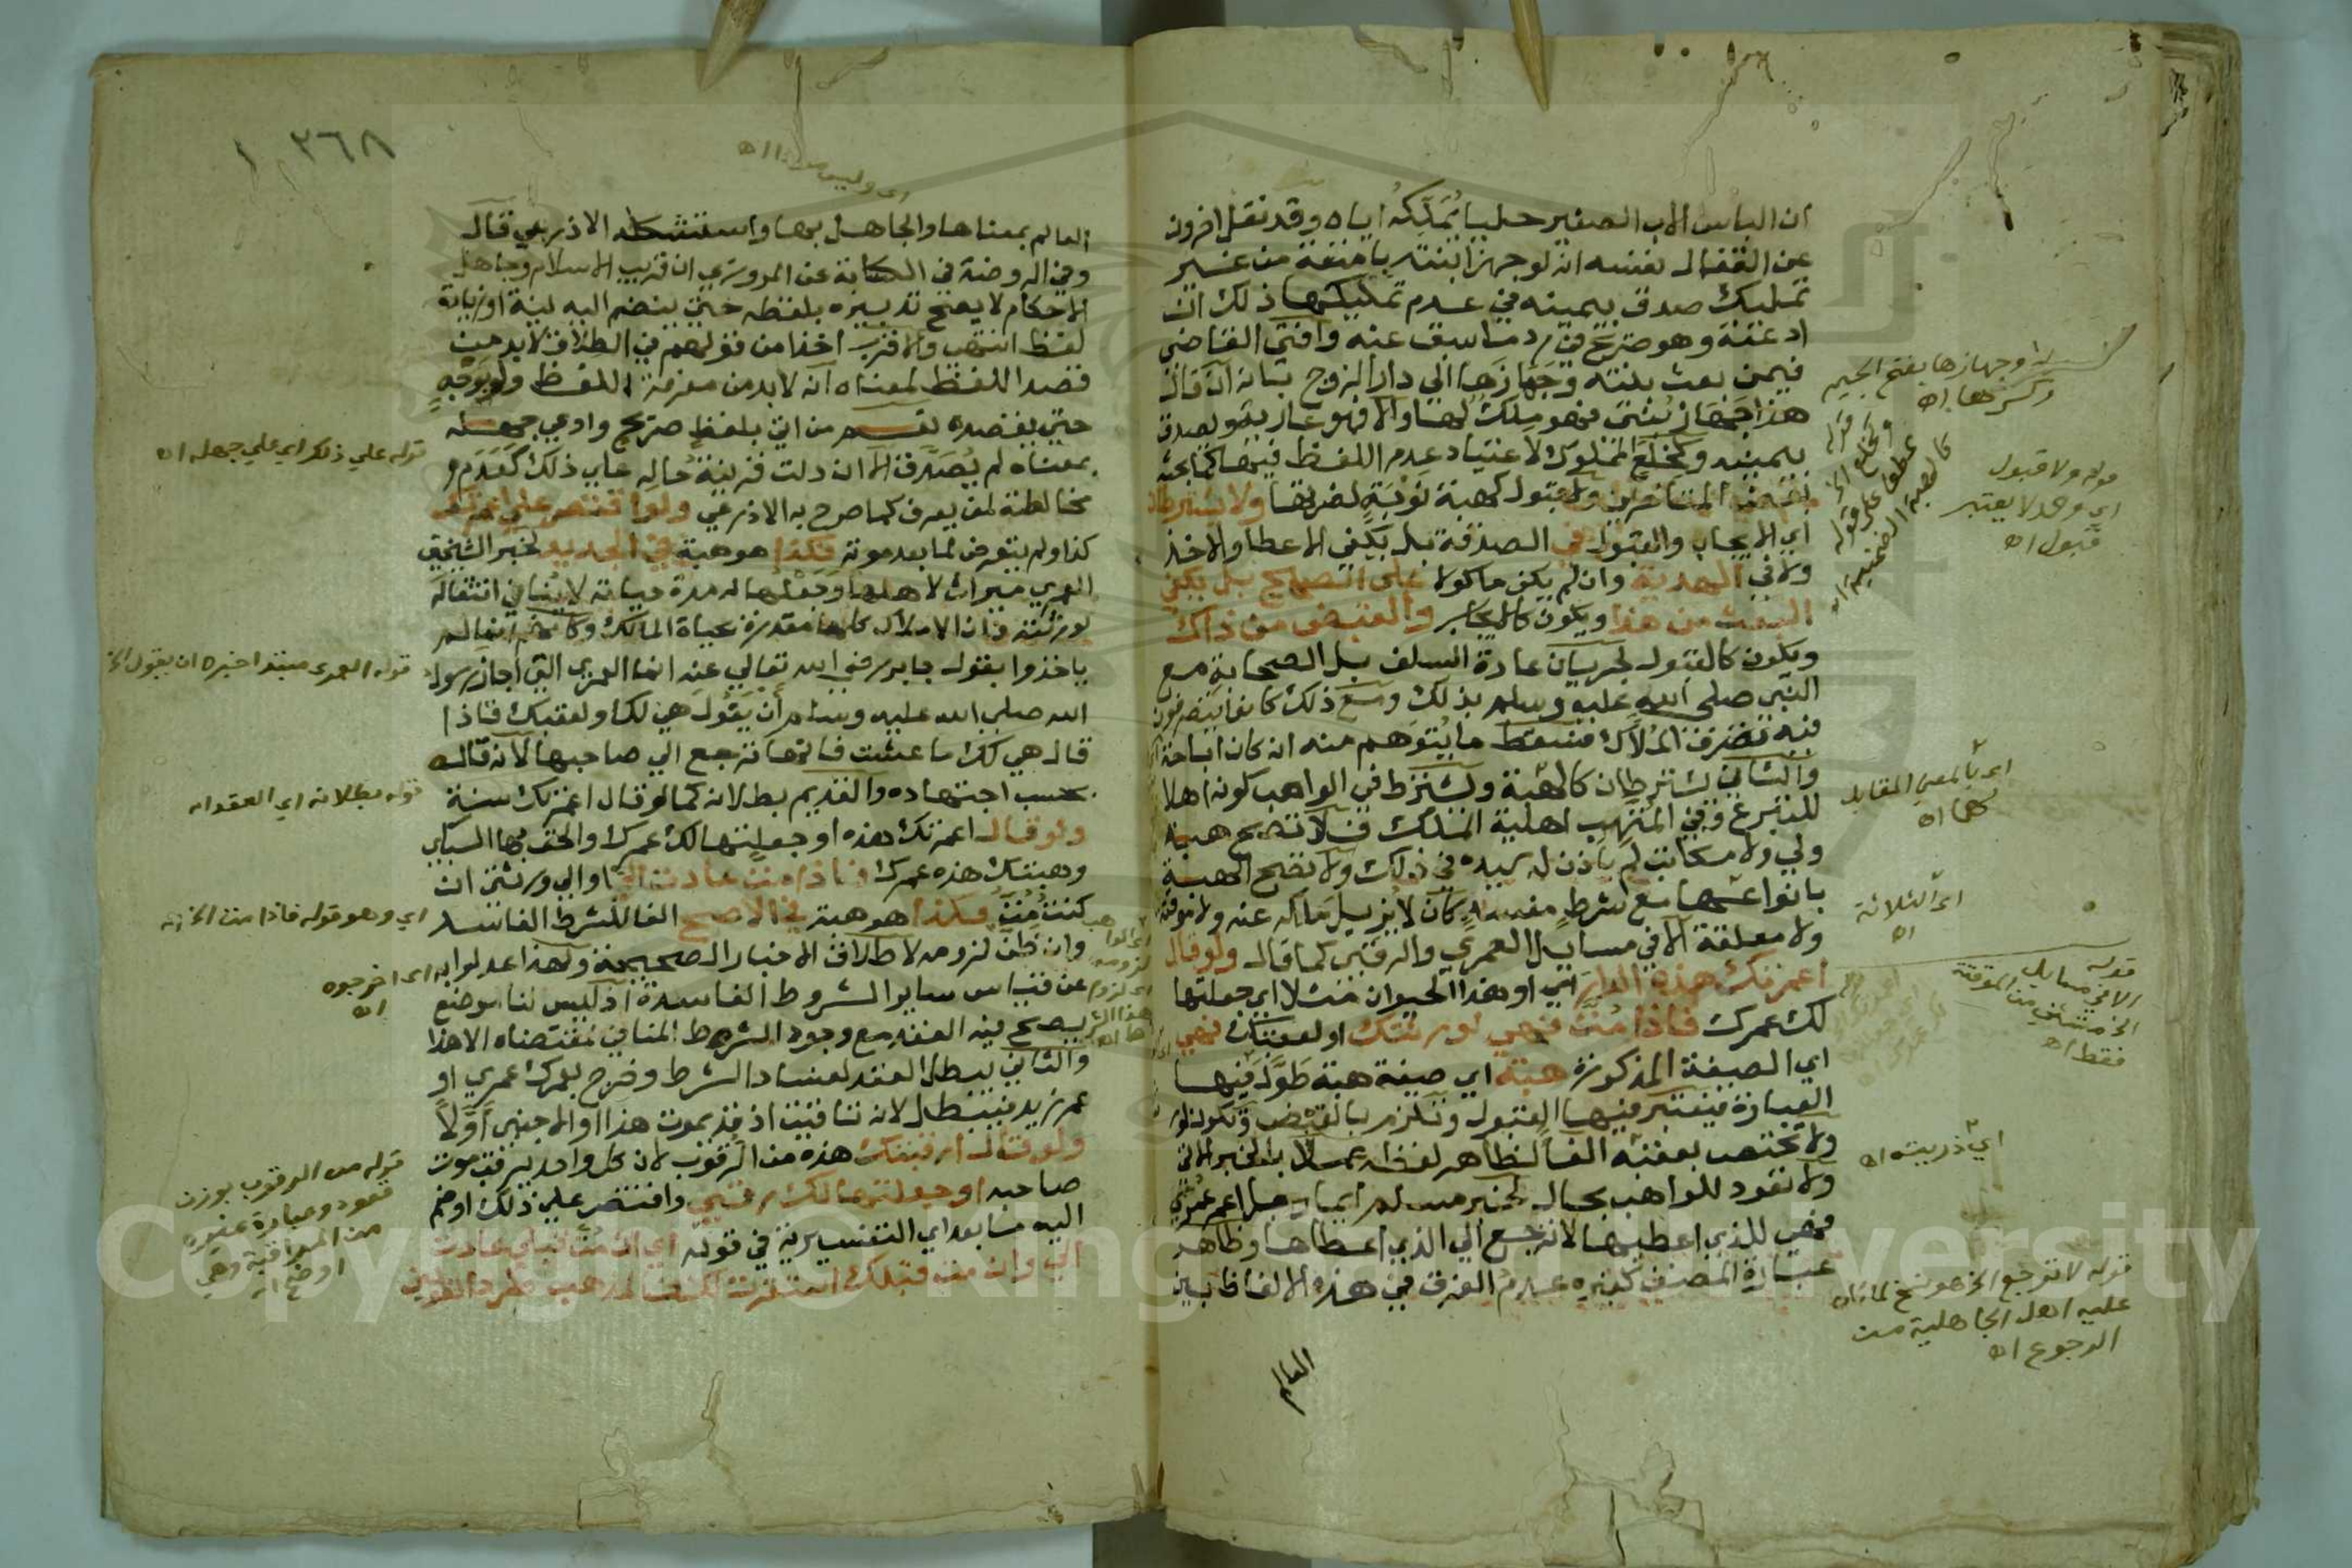 ان الباس الاب الصغير حليا يُمَلِّكُه اياه وقد نقل اخرون
عن القفال نفسه انه لو جهز ابنته بامتعة من غير
تمليك صدق بيمينه في عدم تمليكها ذلك ان
ادعته وهو صريح في رد ما سبق عنه وافتى القاضي
فيمن بعث بنته وجهازها الي دار الزوج بانه ان قال
هذا جهاز بنتي فهو ملك لها والا فهو عارية ويصدق
بيمينه وكخلع الملوك لاعتياد عدم اللفظ فيها كما بحثه
بعض المتاخرين ولا قبول كهبة نوبةٍ لضرتها ولا يشترطان
اي الايجاب والقبول في الصدقة بل يكفي الاعطا والاخذ
ولا في الهدية وان لم يكن ماكولا على الصحيح بل يكفي
البعث من هذا ويكون كالايجاب والقبض من ذاك
ويكون كالقبول لجريان عادة السلف بل الصحابة مع
النبي صلى الله عليه وسلم بذلك ومع ذلك كانوا يتصرفون
فيه تصرف الملاك فسقط ما يُتوهم منه انه كان اباحة
والثاني يشترطان كالهبة ويشترط في الواهب كونه اهلا
للتبرع وفي المتهب اهلية الملك فلا تصح هبة
ولي ولا مكاتب لم ياذن له سيده في ذلك ولا تصح الهبة
بانواعها مع شرط مفسد كان لا يزيل ملكه عنه ولا موقتة
ولا معلقة الا في مسايل العمرى والرقبى كما قال ولو قال
اعمرتك هذه الدار اي او هذا الحيوان مثلا اي جعلتها
لك عمرك فاذا مُتَّ فهي لورثتك او لعقبك فهي
اي الصيغة المذكورة هبة اي صيغة هبة طوَّل فيها
العبارة فيعتبر فيها القبول وتلزم بالقبض وتكون لورثته
ولا تختص بعقبه الغا لظاهر لفظه عملا بالخبر الاتي
ولا تعود للواهب بحال لخبر مسلم ايما رجل اعمر عُمْرَى
فهي للذي اعطيها لا ترجع الي الذي اعطاها وظاهر
عبارة المصنف كغيره عدم الفرق في هذه الالفاظ بين
العالم
قوله وجهازها بفتح الجيم
وكسرها اه
قوله
وكخلع الخ
عطف على قوله
قوله ولا قبول
اي وحد لا يعتبر
قبول اه
اي بالمعني المقابل
لهما اه
اي الثلاثة
اه
قوله
الا في مسايل
الخ مستثنى من الموقتة
فقط اه
اي ذريته اه
قوله لا ترجع الخ هو نسخ لما كان
عليه اهل الجاهلية من
الرجوع اه
١ ٣٦٨
العالم بمعناها والجاهل بها واستشكله الاذرعي قال
وفي الروضة في الكتابة عن المروزي ان قريب الاسلام وجاهل
الاحكام لا يصح تدبيره بلفظه حتى ينضم اليه نية او زيادة
لفظ انتهى والاقرب اخذا من قولهم في الطلاق لا بد من
قصد اللفظ لمعناه انه لا بد من معرفة اللفظ ولو بوجه
حتى يقصده نعم من اتى بلفظ صريح وادعى جهله
بمعناه لم يُصَدَّق الا ان دلت قرينة حاله على ذلك كعدم
مخالطته لمن يعرف كما صرح به الاذرعي ولو اقتصر على اعمرتك
كذا ولم يتعرض لما بعد موته فكذا هو هبة في الجديد لخبر الشيخين
العمري ميراث لاهلها وجعلها له مدة حياته لا ينافي انتقاله
لورثته فان الاملاك كلها مقدرة بحياة المالك وكانهم انما لم
ياخذوا بقول جابر رضي الله تعالى عنه انما العمرى التي اجاز رسول
الله صلى الله عليه وسلم أن يَقُول هي لك ولعقبك فاذا
قال هي لك ما عشت فانها ترجع الي صاحبها لانه قاله
بحسب اجتهاده والقديم بطلانه كما لو قال اعمرتك سنة
ولو قال اعمرتك هذه او جعلتها لك عمرك والحق بها السبكي
وهبتك هذه عمرك فاذا مت عادت اليَّ او الى ورثتي ان
كنت مُت فكذا هو هبة في الاصح الغا للشرط الفاسد
وان ظن لزومه لاطلاق الاخبار الصحيحة ولهذا عدلوا به
عن قياس ساير الشروط الفاسدة اذ ليس لنا موضع
يصح فيه العقد مع وجود الشرط المنافي لمقتضاه الا هذا
والثاني يبطل العقد لفساد الشرط وخرج بعمرك عمري او
عمر زيد فيبطل لانه تاقيت اذ قد يموت هذا او الاجنبي أوَّلاً
ولو قال ارقبتك هذه من الرقوب لان كل واحد يرقب موت
صاحبه او جعلتها لك رقبى واقتصر على ذلك او ضم
اليه ما بعد اي التفسيرية في قوله اي ان مت قبلي عادت
الي وان مت قبلك استقرت لك فالمذهب طرد القولين
قوله على ذلك اي على جهله اه
قوله العمرى مبتدا خبره ان يقول الخ
قوله بطلانه اي العقد اه
اي وهو قوله فاذا مت الخ اه
اي اخرجوه
اه
قوله من الرقوب بوزن
قعود وعبارة غيره
من المراقبة وهي
اوضح اه